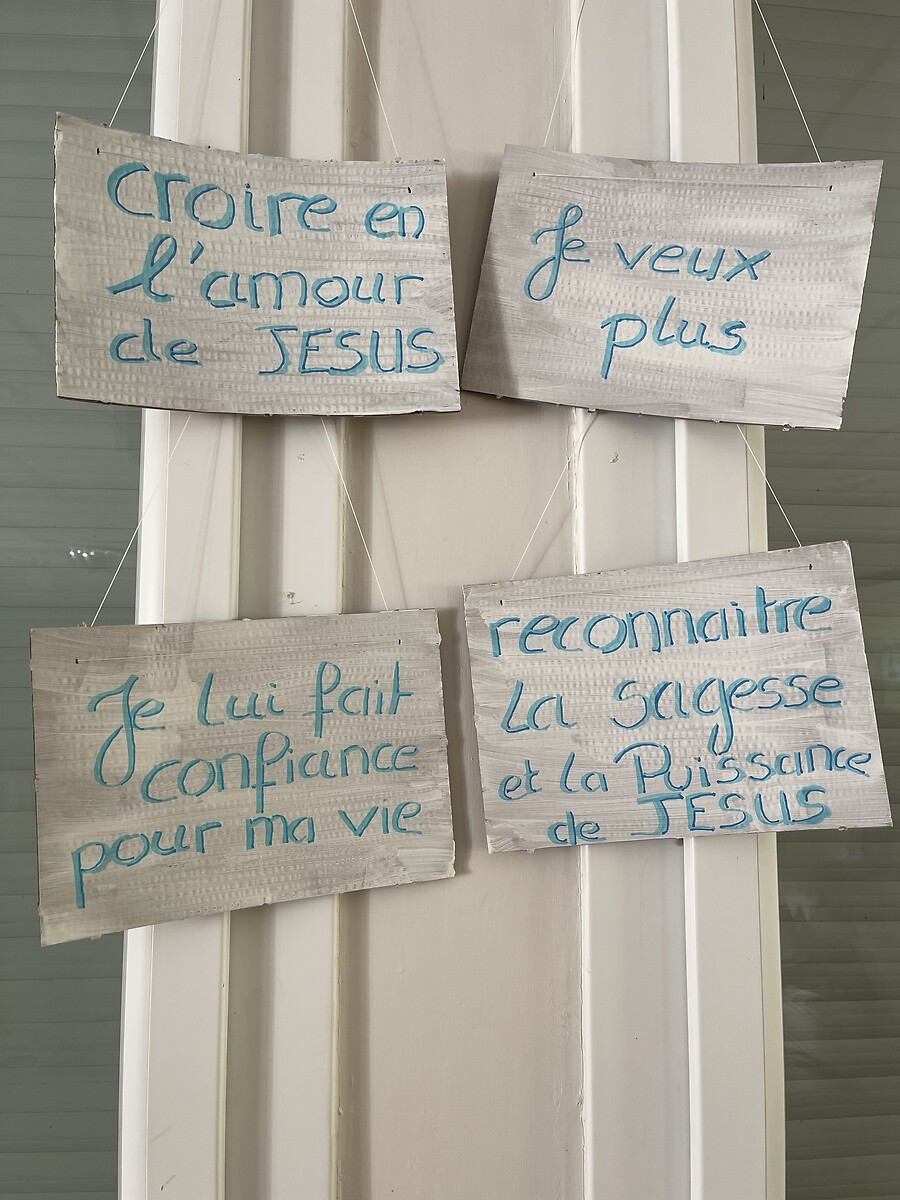 croire en
l'amour
de JESUS
Je veux
plus
Je Lui fait
confiance
pour ma vie
reconnaitre
La sagesse
et la Puissance
de JESUS